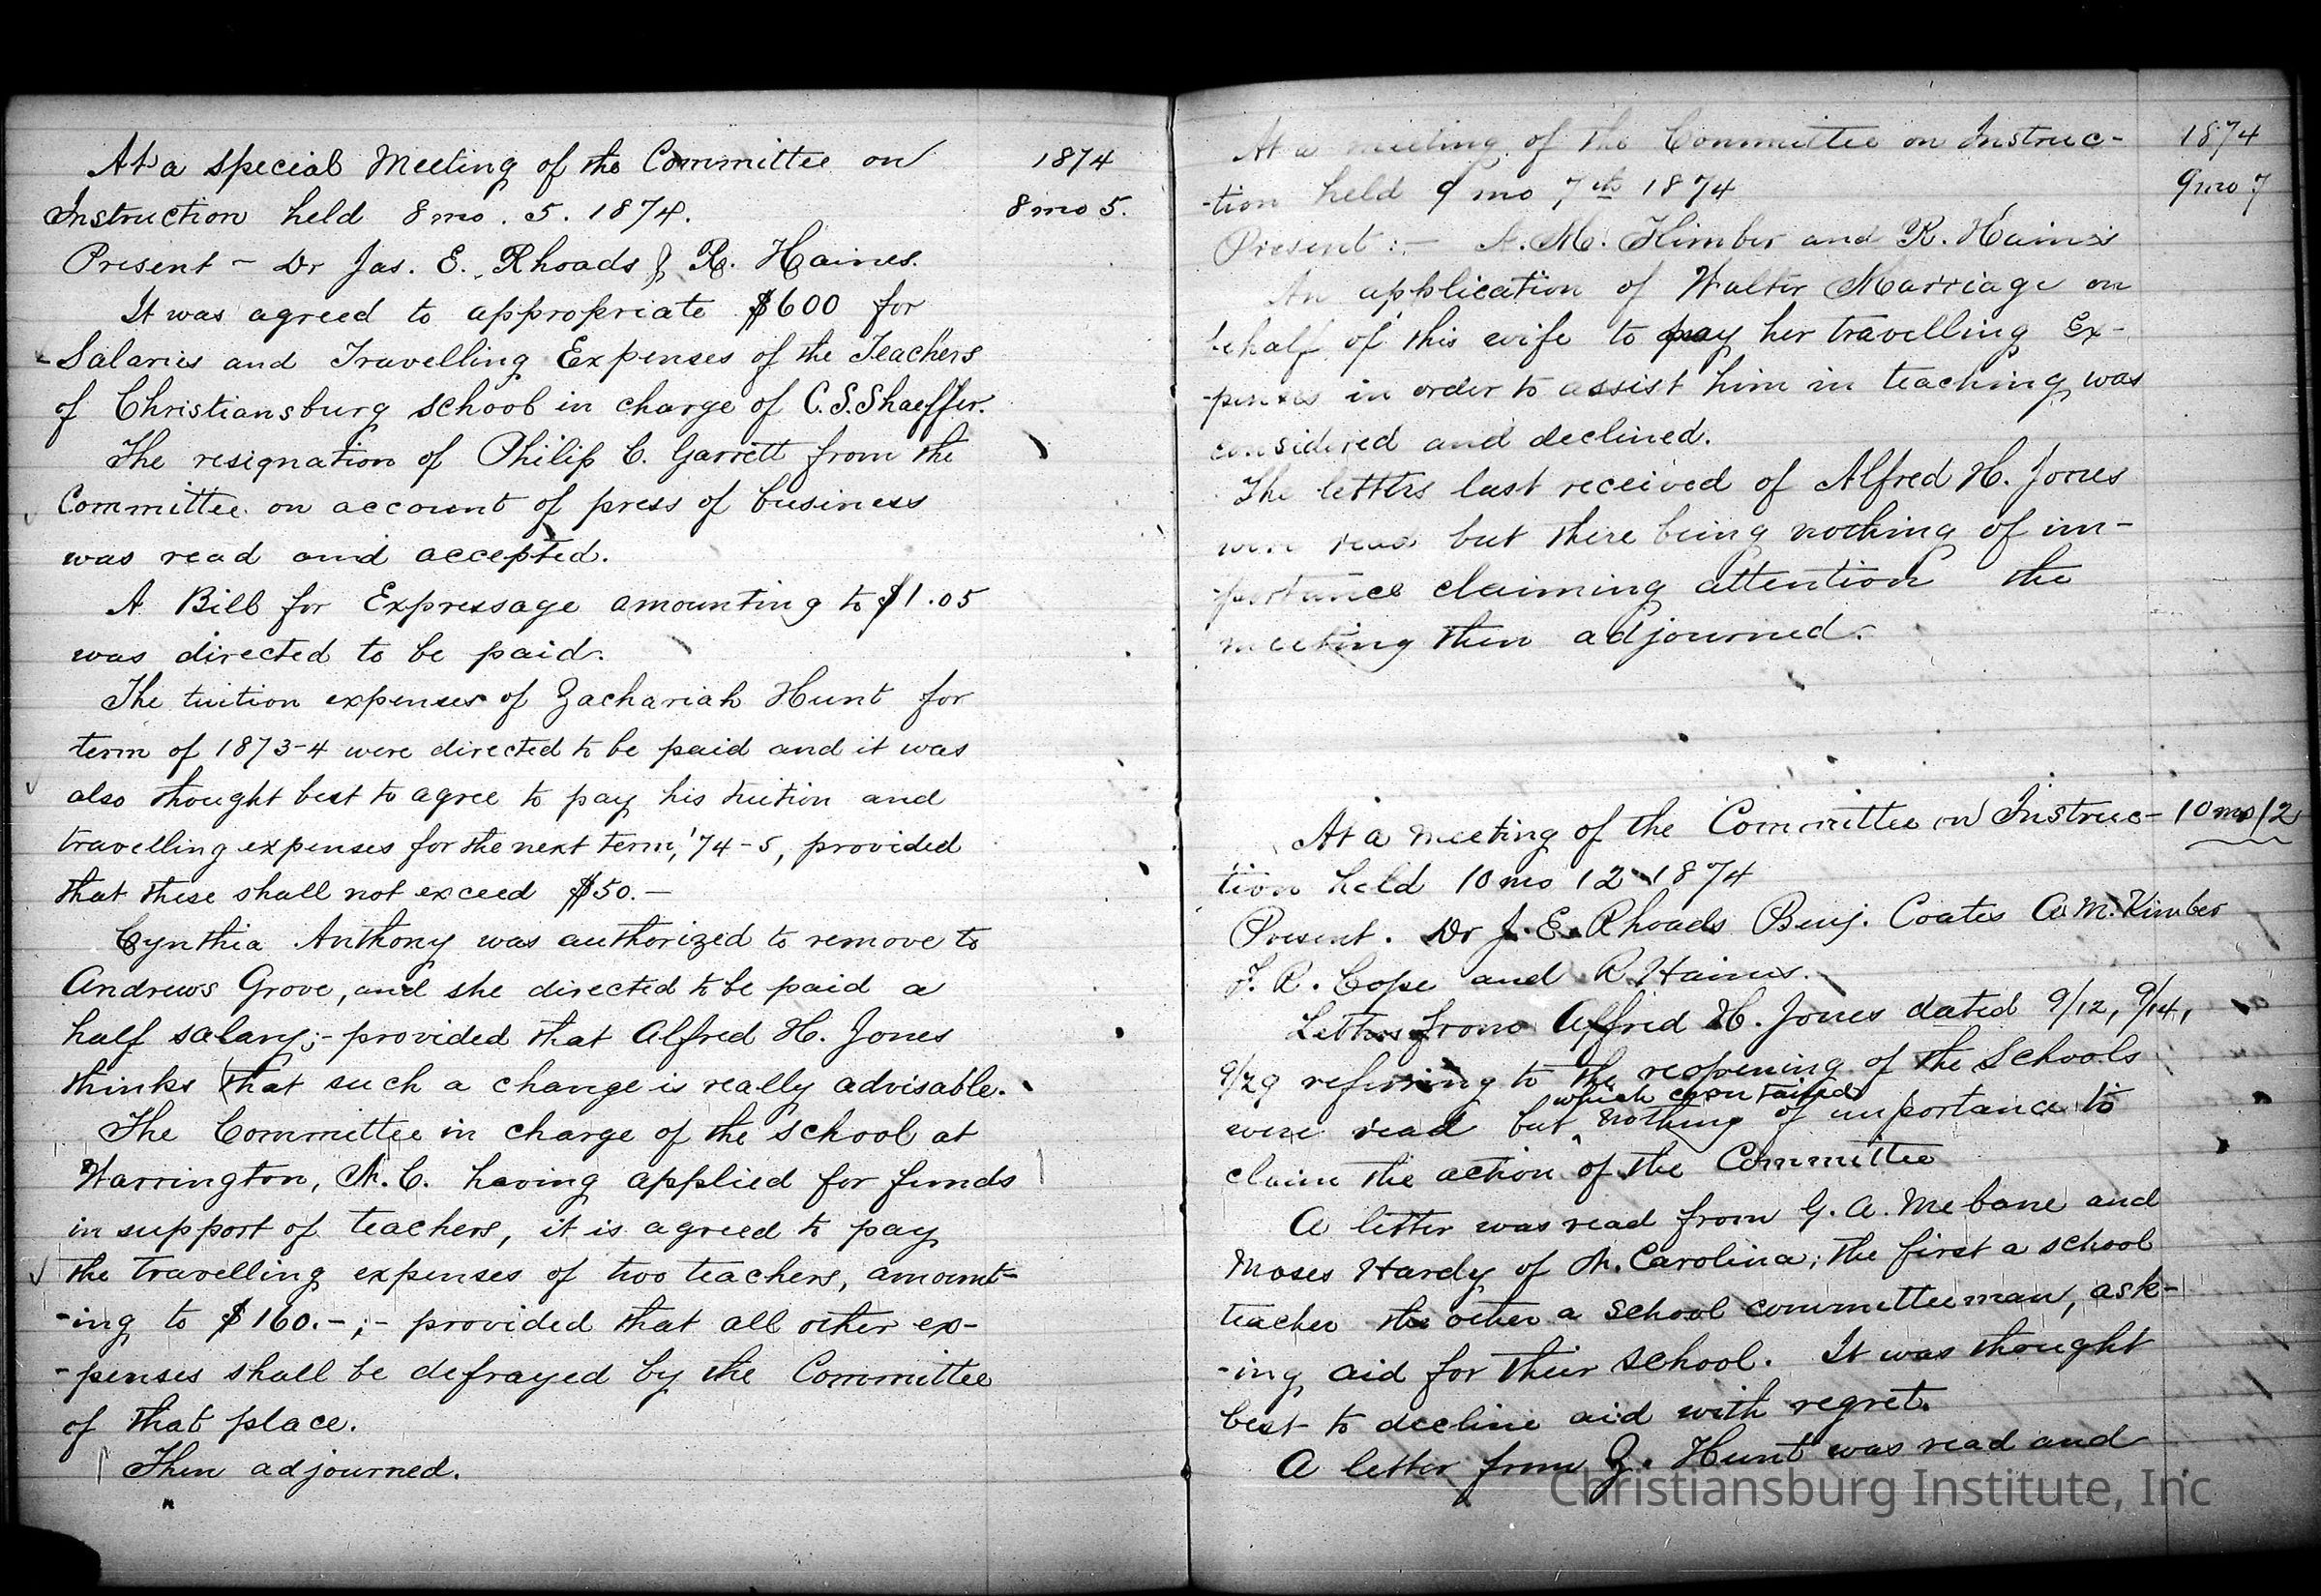 At a special Meeting of the Committee on
1874
Instruction held 8 mo. 5. 1874.
8 mo 5.
Present - Dr Jas. E. Rhoads & R. Haines.
It was agreed to appropriate $600 for
Salaries and Travelling Expenses of the Teachers
of Christiansburg school in charge of C.S. Shaeffer.
The resignation of Philip C. Garrett from the
Committee on account of press of business
was read and accepted.
A Bill for Expressage amounting to $1.05
was directed to be paid.
The tuition expenses of Zachariah Hunt for
term of 1873-4 were directed to be paid and it was
also thought best to agree to pay his tuition and
travelling expenses for the next term, '74-5, provided
that these shall not exceed $50.-
Cynthia Anthony was authorized to remove to
Andrews Grove, and she directed to be paid a
half salary;- provided that Alfred H. Jones
thinks that such a change is really advisable.
The Committee in charge of the school at
Warrington, N.C. having applied for funds
in support of teachers, it is agreed to pay
the travelling expenses of two teachers, amount-
-ing to $160.-;- provided that all other ex-
-penses shall be defrayed by the Committee
of that place.
Then adjourned.
At a meeting of the Committee on Instruc-
1874
-tion held 9 mo 7th 1874
9 mo 7
Present :- A. M. Kimber and R. Haines
An application of Walter Marriage on
behalf of this wife to pay her travelling ex-
-penses in order to assist him in teaching was
considered and declined.
The letters last received of Alfred H. Jones
were read but there being nothing of im-
-portance claiming attention the
meeting then adjourned.
At a meeting of the Committee on Instruc-
10 mo 12
tion held 10 mo 12 1874
Present. Dr J. E. Rhoads Benj. Coates A. M. Kimber
F. R. Cope and R. Haines.
Letters from Alfred H. Jones dated 9/12, 9/14,
9/29 referring to the reopening of the Schools
which contained
were read but ^ nothing of importance to
claim the action of the Committee
A letter was read from G. A. Mebane and
Moses Hardy of N. Carolina; the first a school
teacher the other a school committeeman, ask-
-ing aid for their school. It was thought
best to decline aid with regret.
A letter from Z. Hunt was read and
Christiansburg Institute, Inc